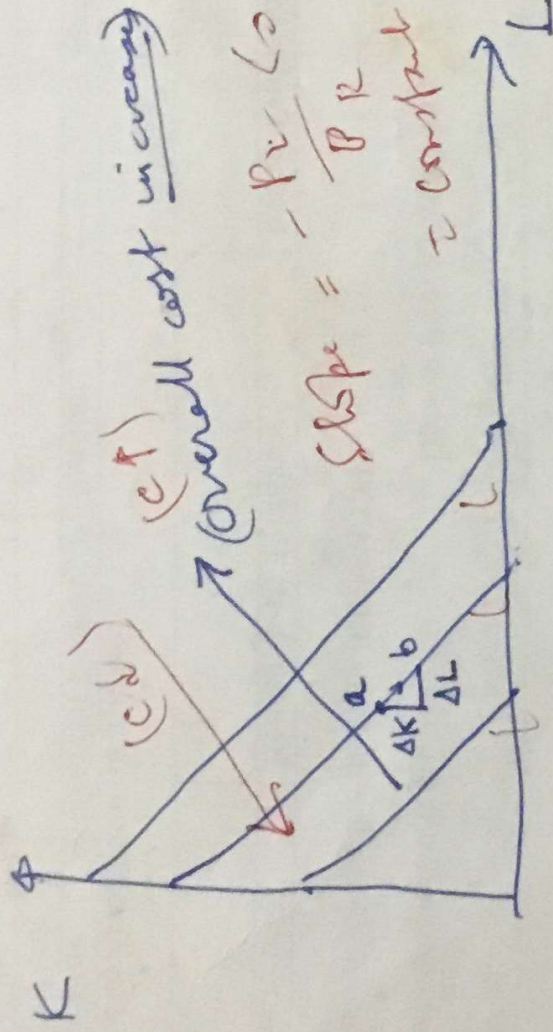 K
(c↓)
(c↑)
(overall cost increases)
Slope = - PL < 0
PK
= constant
a
b
ΔK
ΔL
L